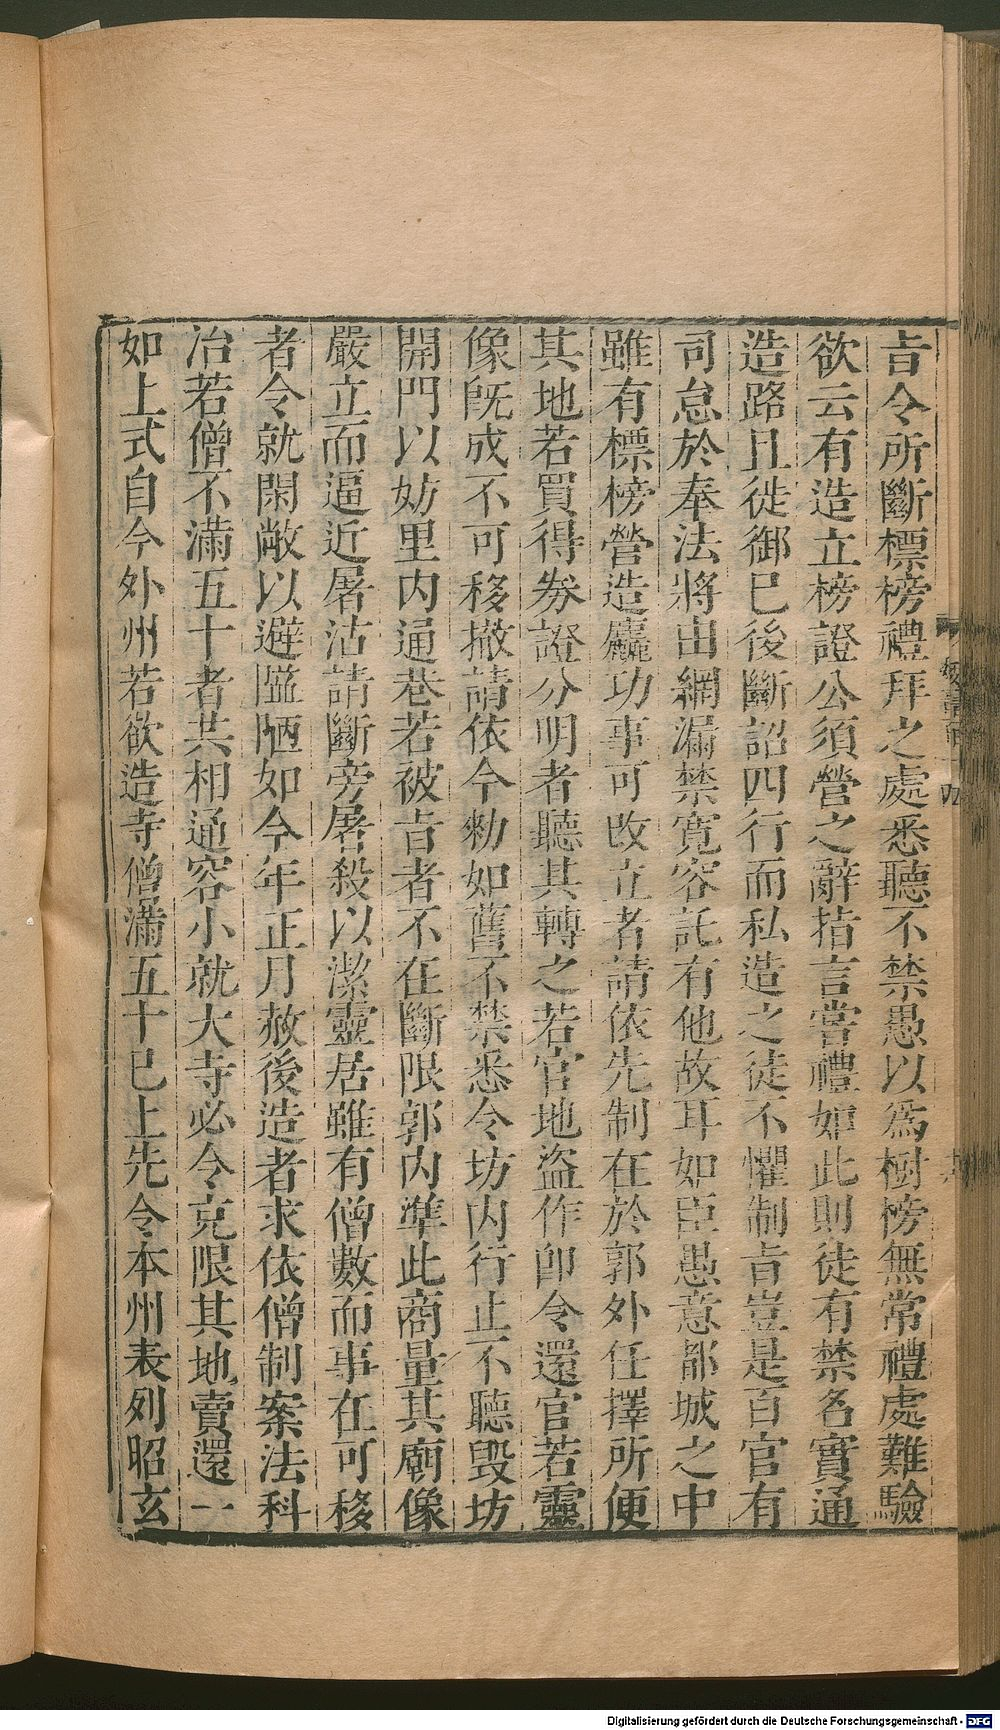 旨令所斷標榜禮拜之處悉聽不禁愚以爲樹榜無常禮處難驗
欲云有造立榜證公須營之辭指言嘗禮如此則徒有禁名實通
造路且徙御已後斷詔四行而私造之徒不懼制旨豈是百官有
司怠於奉法將由網漏禁寬容託有他故耳如臣愚意都城之中
雖有標榜營造麤功事可改立者請依先制在於郭外任擇所便
其地若買得券證分明者聽其轉之若官地盜作卽令還官若靈
像旣成不可移撤請依今勑如舊不禁悉令坊内行止不聽毀坊
開門以妨里内通巷若被旨者不在斷限郭内準此商量其廟像
嚴立而逼近屠沽請斷旁屠殺以潔靈居雖有僧數而事在可移
者令就閑敞以避隘陋如今年正月赦後造者求依僧制案法科
治若僧不滿五十者共相通容小就大寺必令充限其地賣還一
如上式自今外州若欲造寺僧滿五十已上先令本州表列昭玄
Digitalisierung gefördert durch die Deutsche Forschungsgemeinschaft - DFG